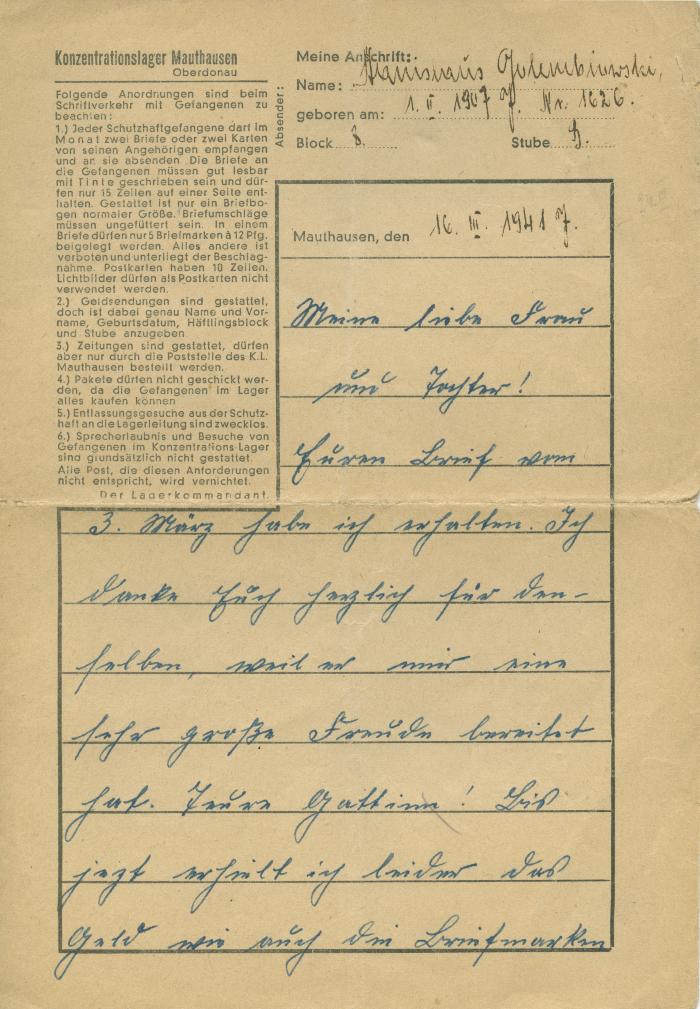 Konzentrationslager Mauthausen
Oberdonau
Folgende Anordnungen sind beim
Schriftverkehr mit Gefangenen zu
beachten:
1.) Jeder Schutzhaftgefangene darf im
Monat zwei Briefe oder zwei Karten
von seinen Angehörigen empfangen
und an sie absenden. Die Briefe an
die Gefangenen müssen gut lesbar
mit Tinte geschrieben sein und dür-
fen nur 15 Zeilen auf einer Seite ent-
halten. Gestattet ist nur ein Briefbo-
gen normaler Größe. Briefumschläge
müssen ungefüttert sein. In einem
Briefe dürfen nur 5 Briefmarken à 12 Pfg.
beigelegt werden. Alles andere ist
verboten und unterliegt der Beschlag-
nahme. Postkarten haben 10 Zeilen.
Lichtbilder dürfen als Postkarten nicht
verwendet werden.
2.) Geldsendungen sind gestattet,
doch ist dabei genau Name und Vor-
name, Geburtsdatum, Häftlingsblock
und Stube anzugeben
3.) Zeitungen sind gestattet, dürfen
aber nur durch die Poststelle des K.L.
Mauthausen bestellt werden.
4.) Pakete dürfen nicht geschickt wer-
den, da die Gefangenen im Lager
alles kaufen können
5.) Entlassungsgesuche aus der Schutz-
haft an die Lagerleitung sind zwecklos.
6.) Sprecherlaubnis und Besuche von
Gefangenen im Konzentrations-Lager
sind grundsätzlich nicht gestattet.
Alle Post, die diesen Anforderungen
nicht entspricht, wird vernichtet.
Der Lagerkommandant.
Absender:
Meine Anschrift:
Name: Stanislaus Golembiewski,
geboren am: 1. II. 1907 J. Nr. 1626.
Block 8. Stube
Mauthausen, den 16. III. 1941 J.
Meine liebe Frau
und Tochter!
Euren Brief vom
3. März habe ich erhalten. Ich
danke Euch herzlich für den-
selben, weil er mir eine
sehr große Freude bereitet
hat. Teure Gattin! Bis
jezt erhielt ich leider das
Geld wie auch die Briefmarken